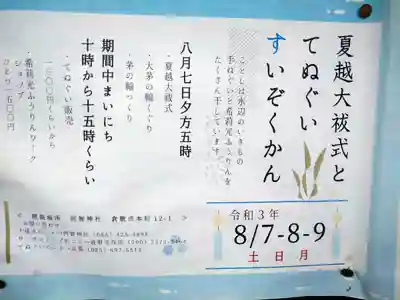 夏越大祓式と
てぬぐい
すいぞくかん
ことしは水辺のいきもの
手ぬぐいと希莉光ふうりんを
たくさん干しています
八月七日夕方五時
・夏越大祓式
・大茅の輪くぐり
・茅の輪つくり
期間中まいにち
十時から十五時くらい
・てぬぐい販売
一三〇〇円くらいから
・希莉光ふうりんワーク
ショップ
ひとり一五〇〇円
令和3年
8/7-8-9
土 日 月
阿智神社 倉敷市本町 12-1